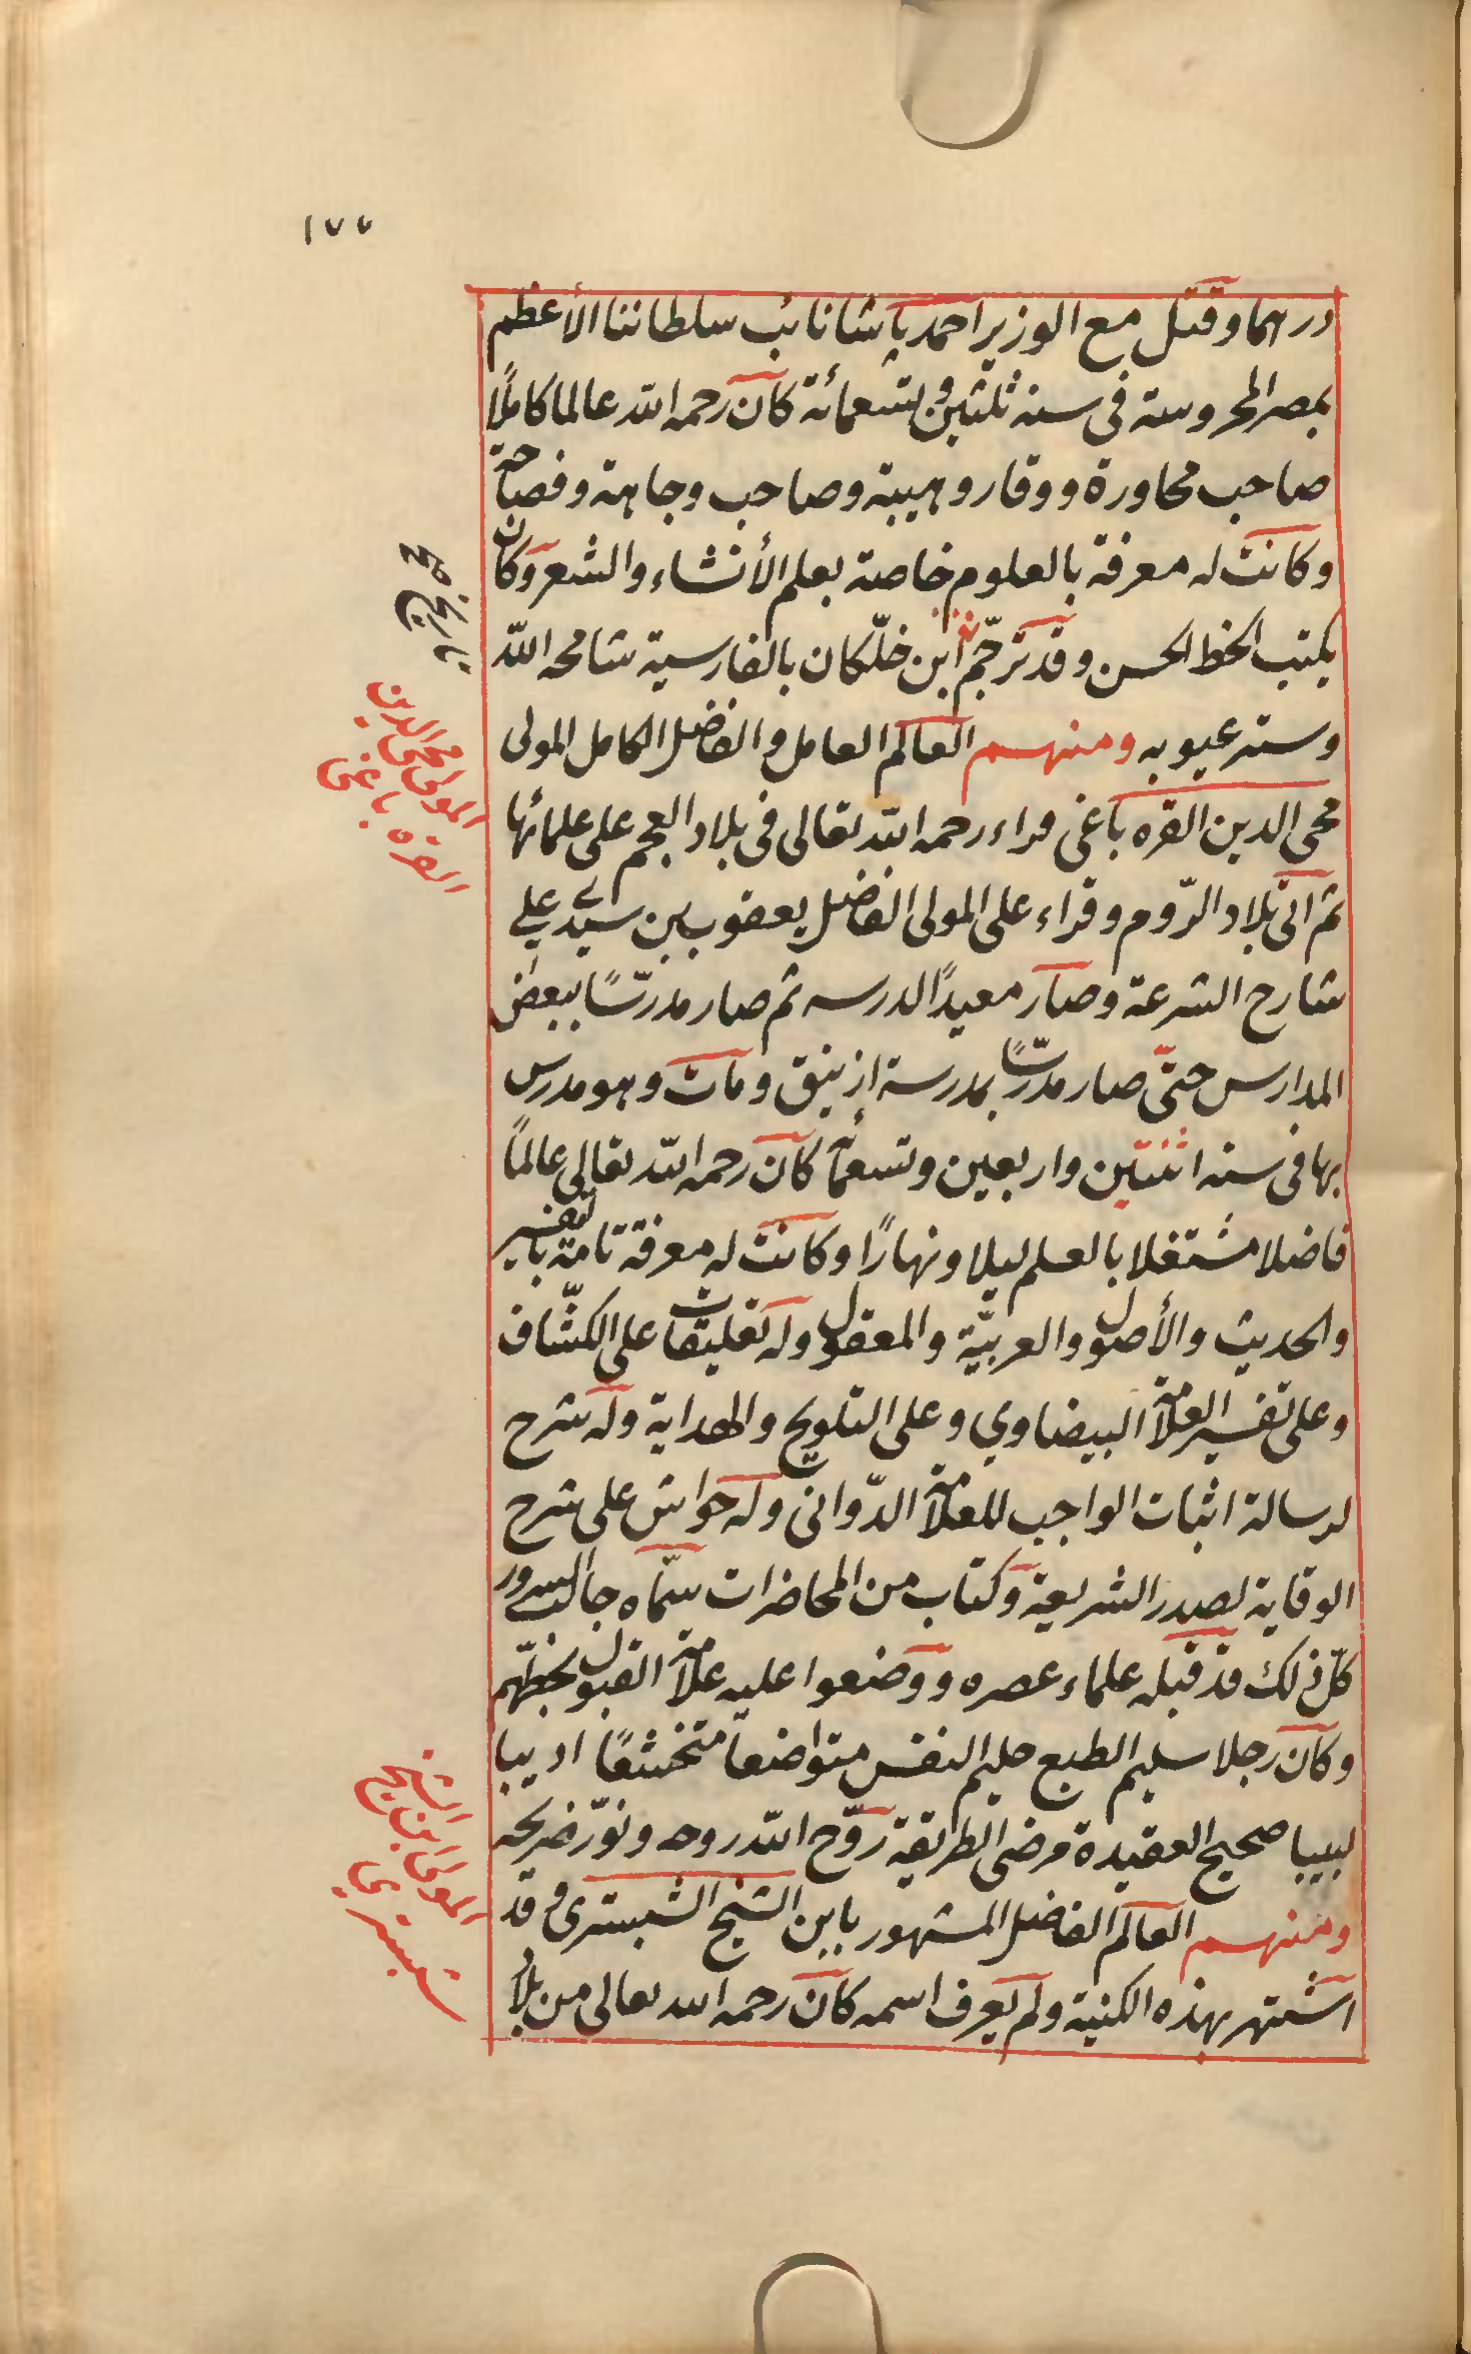 ١٧٧
درهما وقتل مع الوزير احمد پاشا نائب سلطاننا الأعظم
بمصر المحروسة فى سنه ثلثين وتسعمائة كان رحمه الله عالما كاملًا
صاحب محاورة ووقار وهيبة وصاحب وجاهة وفصاحة
وكانت له معرفة بالعلوم خاصة بعلم الأنشاء والشعر وكان
يكتب الخط الحسن وقد ترجّم ابن خلّكان بالفارسية سامحه الله
تاريخ صح
وستر عيوبه ومنهم العالم العامل والفاضل الكامل المولى
المولى محى الدين
القره باغى
محى الدين القره باغى قراء رحمه الله تعالى فى بلاد العجم على علمائها
ثم اتى بلاد الرّوم وقراء على المولى الفاضل يعقوب بن سيدى على
شارح الشرعة وصار معيدًا لدرسه ثم صار مدرّسًا ببعض
المدارس حتّى صار مدرّسًا بمدرسة ازنيق ومات وهو مدرس
بها فى سنه اثنتين واربعين وتسعمائة كان رحمه الله تعالى عالمًا
فاضلا مشتغلا بالعلم ليلا ونهارًا وكانت له معرفة تامة بالتفسير
والحديث والأصول والعربيّة والمعقول وله تعليقات على الكشّاف
وعلى تفسير العلامة البيضاوي وعلى التلويح والهداية وله شرح
لرسالة اثبات الواجب للعلامة الدّوانى وله حواش على شرح
الوقاية لصدر الشريعة وكتاب من المحاضرات سمّاه جالب السرور
كلّ ذلك قد قبله علماء عصره ووضعوا عليه علامة القبول بخطّهم
وكان رجلا سليم الطبع حليم النفس متواضعا متخشعًا اديبا
لبيبا صحيح العقيدة مرضى الطريقة روّح الله روحه ونوّر ضريحه
المولى ابن الشيخ
شبسترى
ومنهم العالم الفاضل المشهور بابن الشيخ الشبسترى وقد
اشتهر بهذه الكنية ولم يعرف اسمه كان رحمه الله تعالى من بلاد